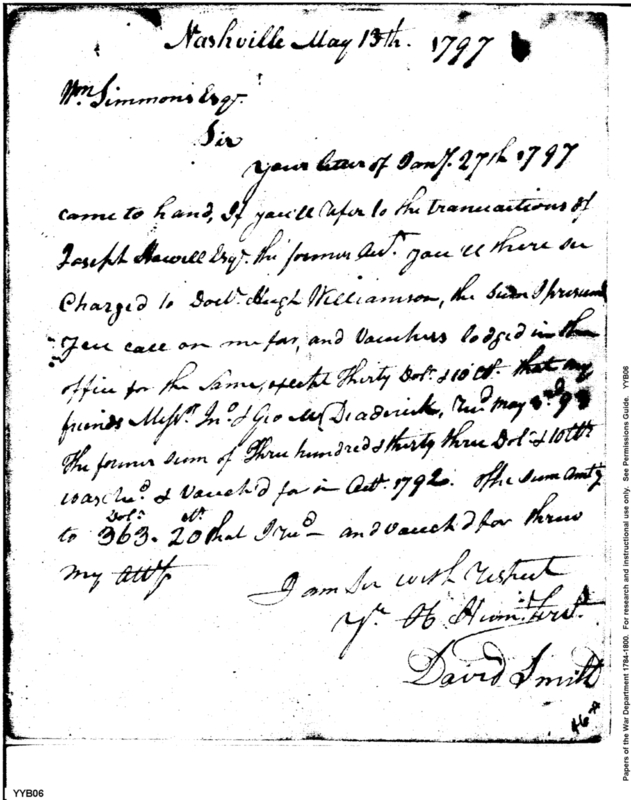 Nashville May 13th. 1797
Wm. Simmons Esqr.
Sir
Your letter of Jany. 27th 1797
came to hand, If you'll refer to the transactions of
Joseph Howell Esqr. the former Act. you'll there see
Charged to Doctr. Hugh Williamson, the sum I presume
you call on me for, and Vouchers lodged in the
office for the same, except Thirty Dols. & 10 Cts. that my
friends Messrs. Jno. & Geo M Deaderick, Recd. May 93
The former sum of Three hundred & thirty three Dols. & 10 Cts.
was recd. & Vouch'd for in Octr. 1792. The sum Amtg
to 363. Dols. 20 Cts. that I recd — and vouch'd for threw
my
I am Sir with respect
Yr. Ob Hum. Servt.
David Smith
46
YYB06
Papers of the War Department 1784-1800. For research and instructional use only. See Permissions Guide. YYB06